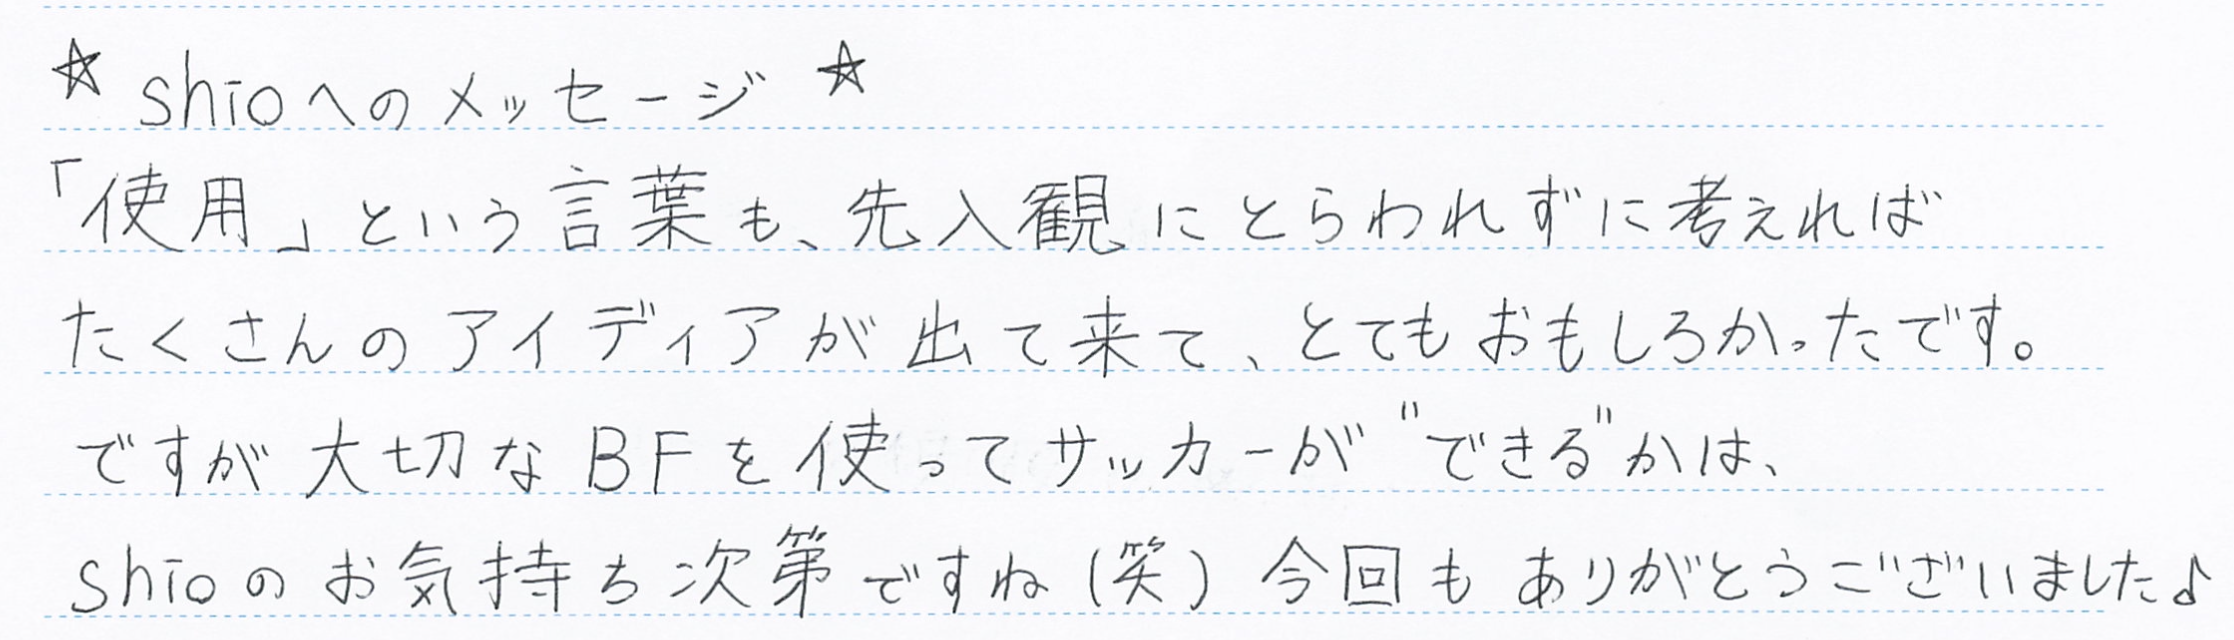 ☆ shioへのメッセージ ☆
「使用」という言葉も、先入観にとらわれずに考えれば
たくさんのアイディアが出て来て、とてもおもしろかったです。
ですが大切なBFを使ってサッカーが"できる"かは、
shioのお気持ち次第ですね(笑) 今回もありがとうございました♪